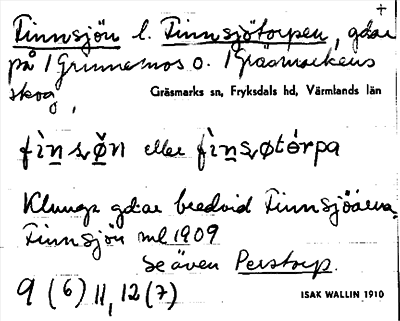 +
Finnsjön l. Finnsjötorpen, gdar
på 1 Grinnemos o. 1 Gräsmarkens
skog,
Gräsmarks sn, Fryksdals hd, Värmlands län
fìnsø̀n eller fìnsøtórpa
Klunga gdar bredvid Finnsjöarna,
Finnsjön ml 1909
se även Perstorp.
9 (6) 11, 12 (7)
ISAK WALLIN 1910